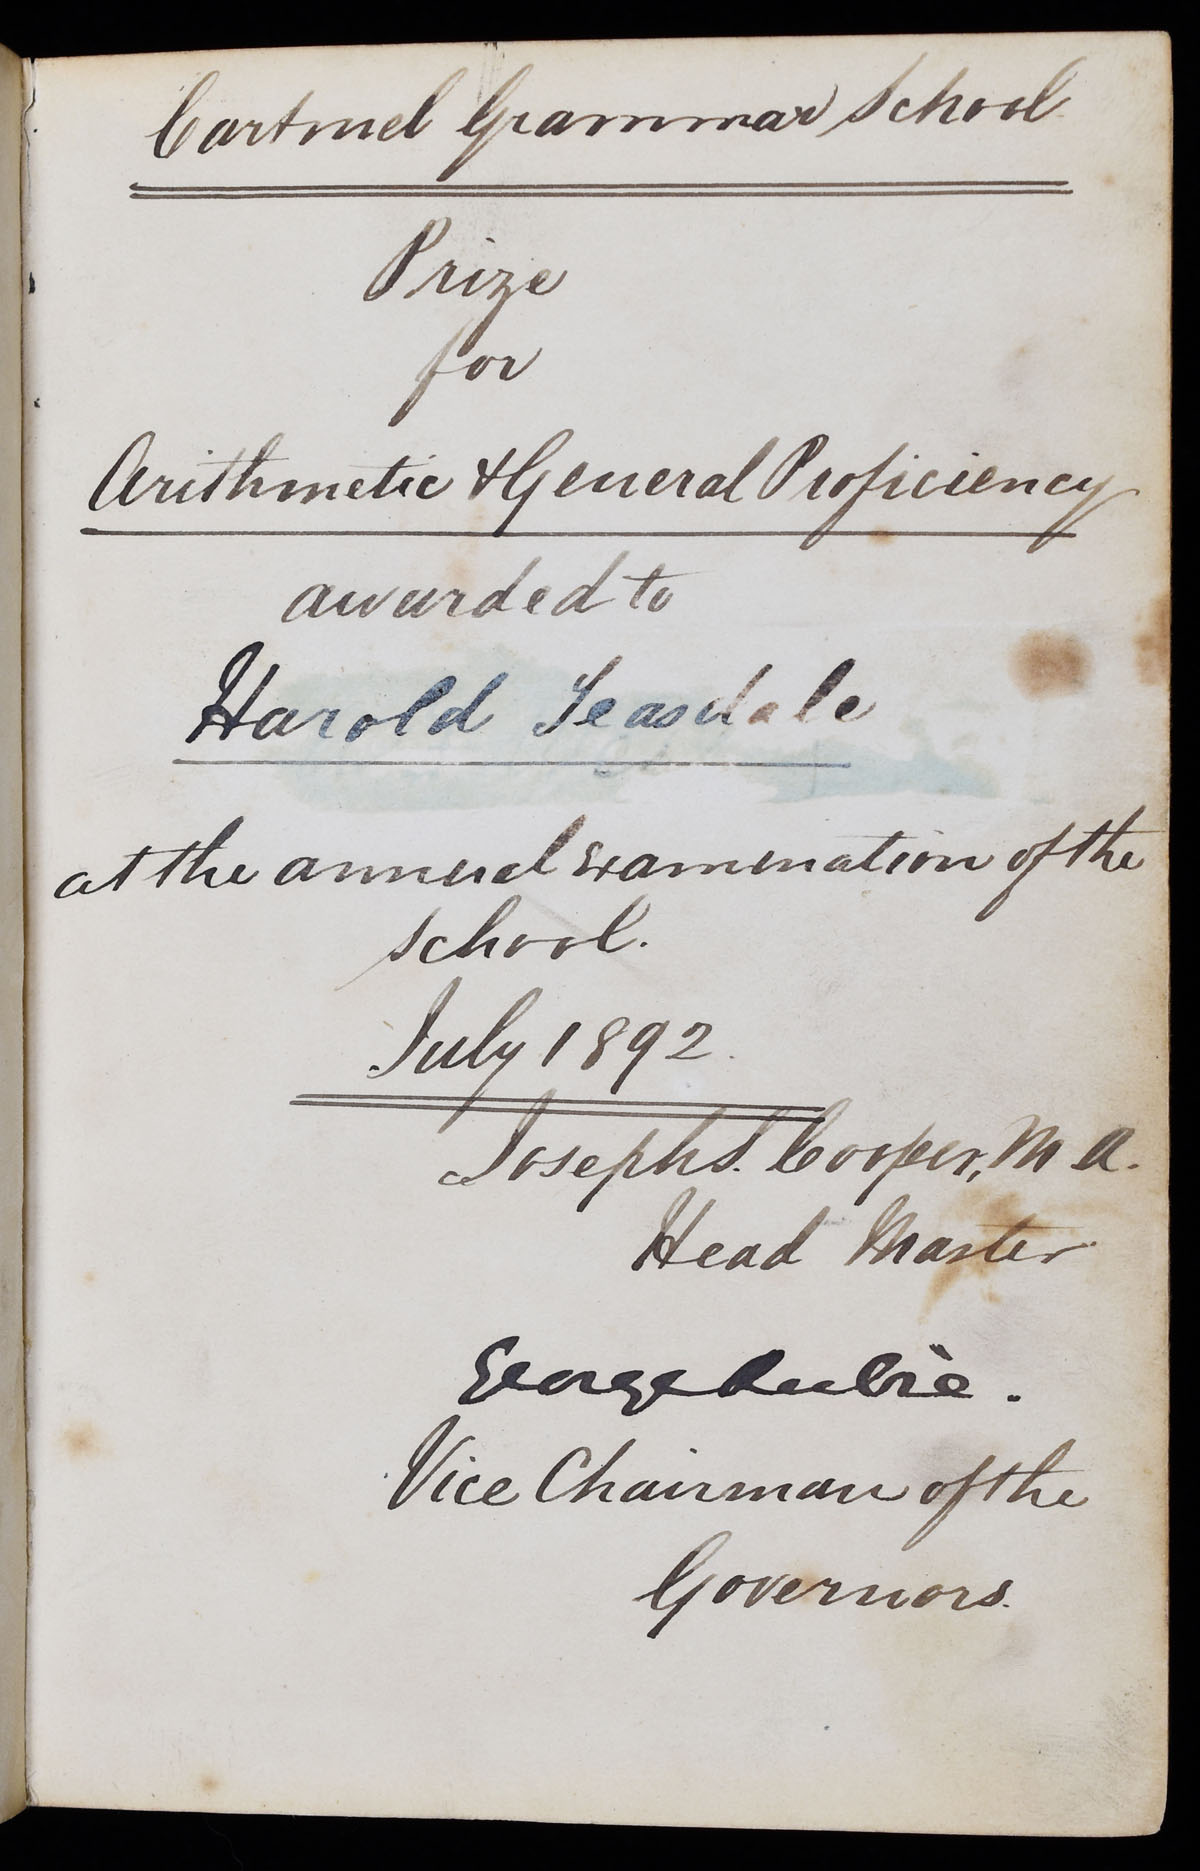 Cartmel Grammar School
Prize
for
Arithmetic & General Proficiency
awarded to
Harold Teasdale
at the annual Examination of the
school.
July 1892.
Joseph S. Cooper, M A.
Head Master
George Rubie.
Vice Chairman of the
Governors.